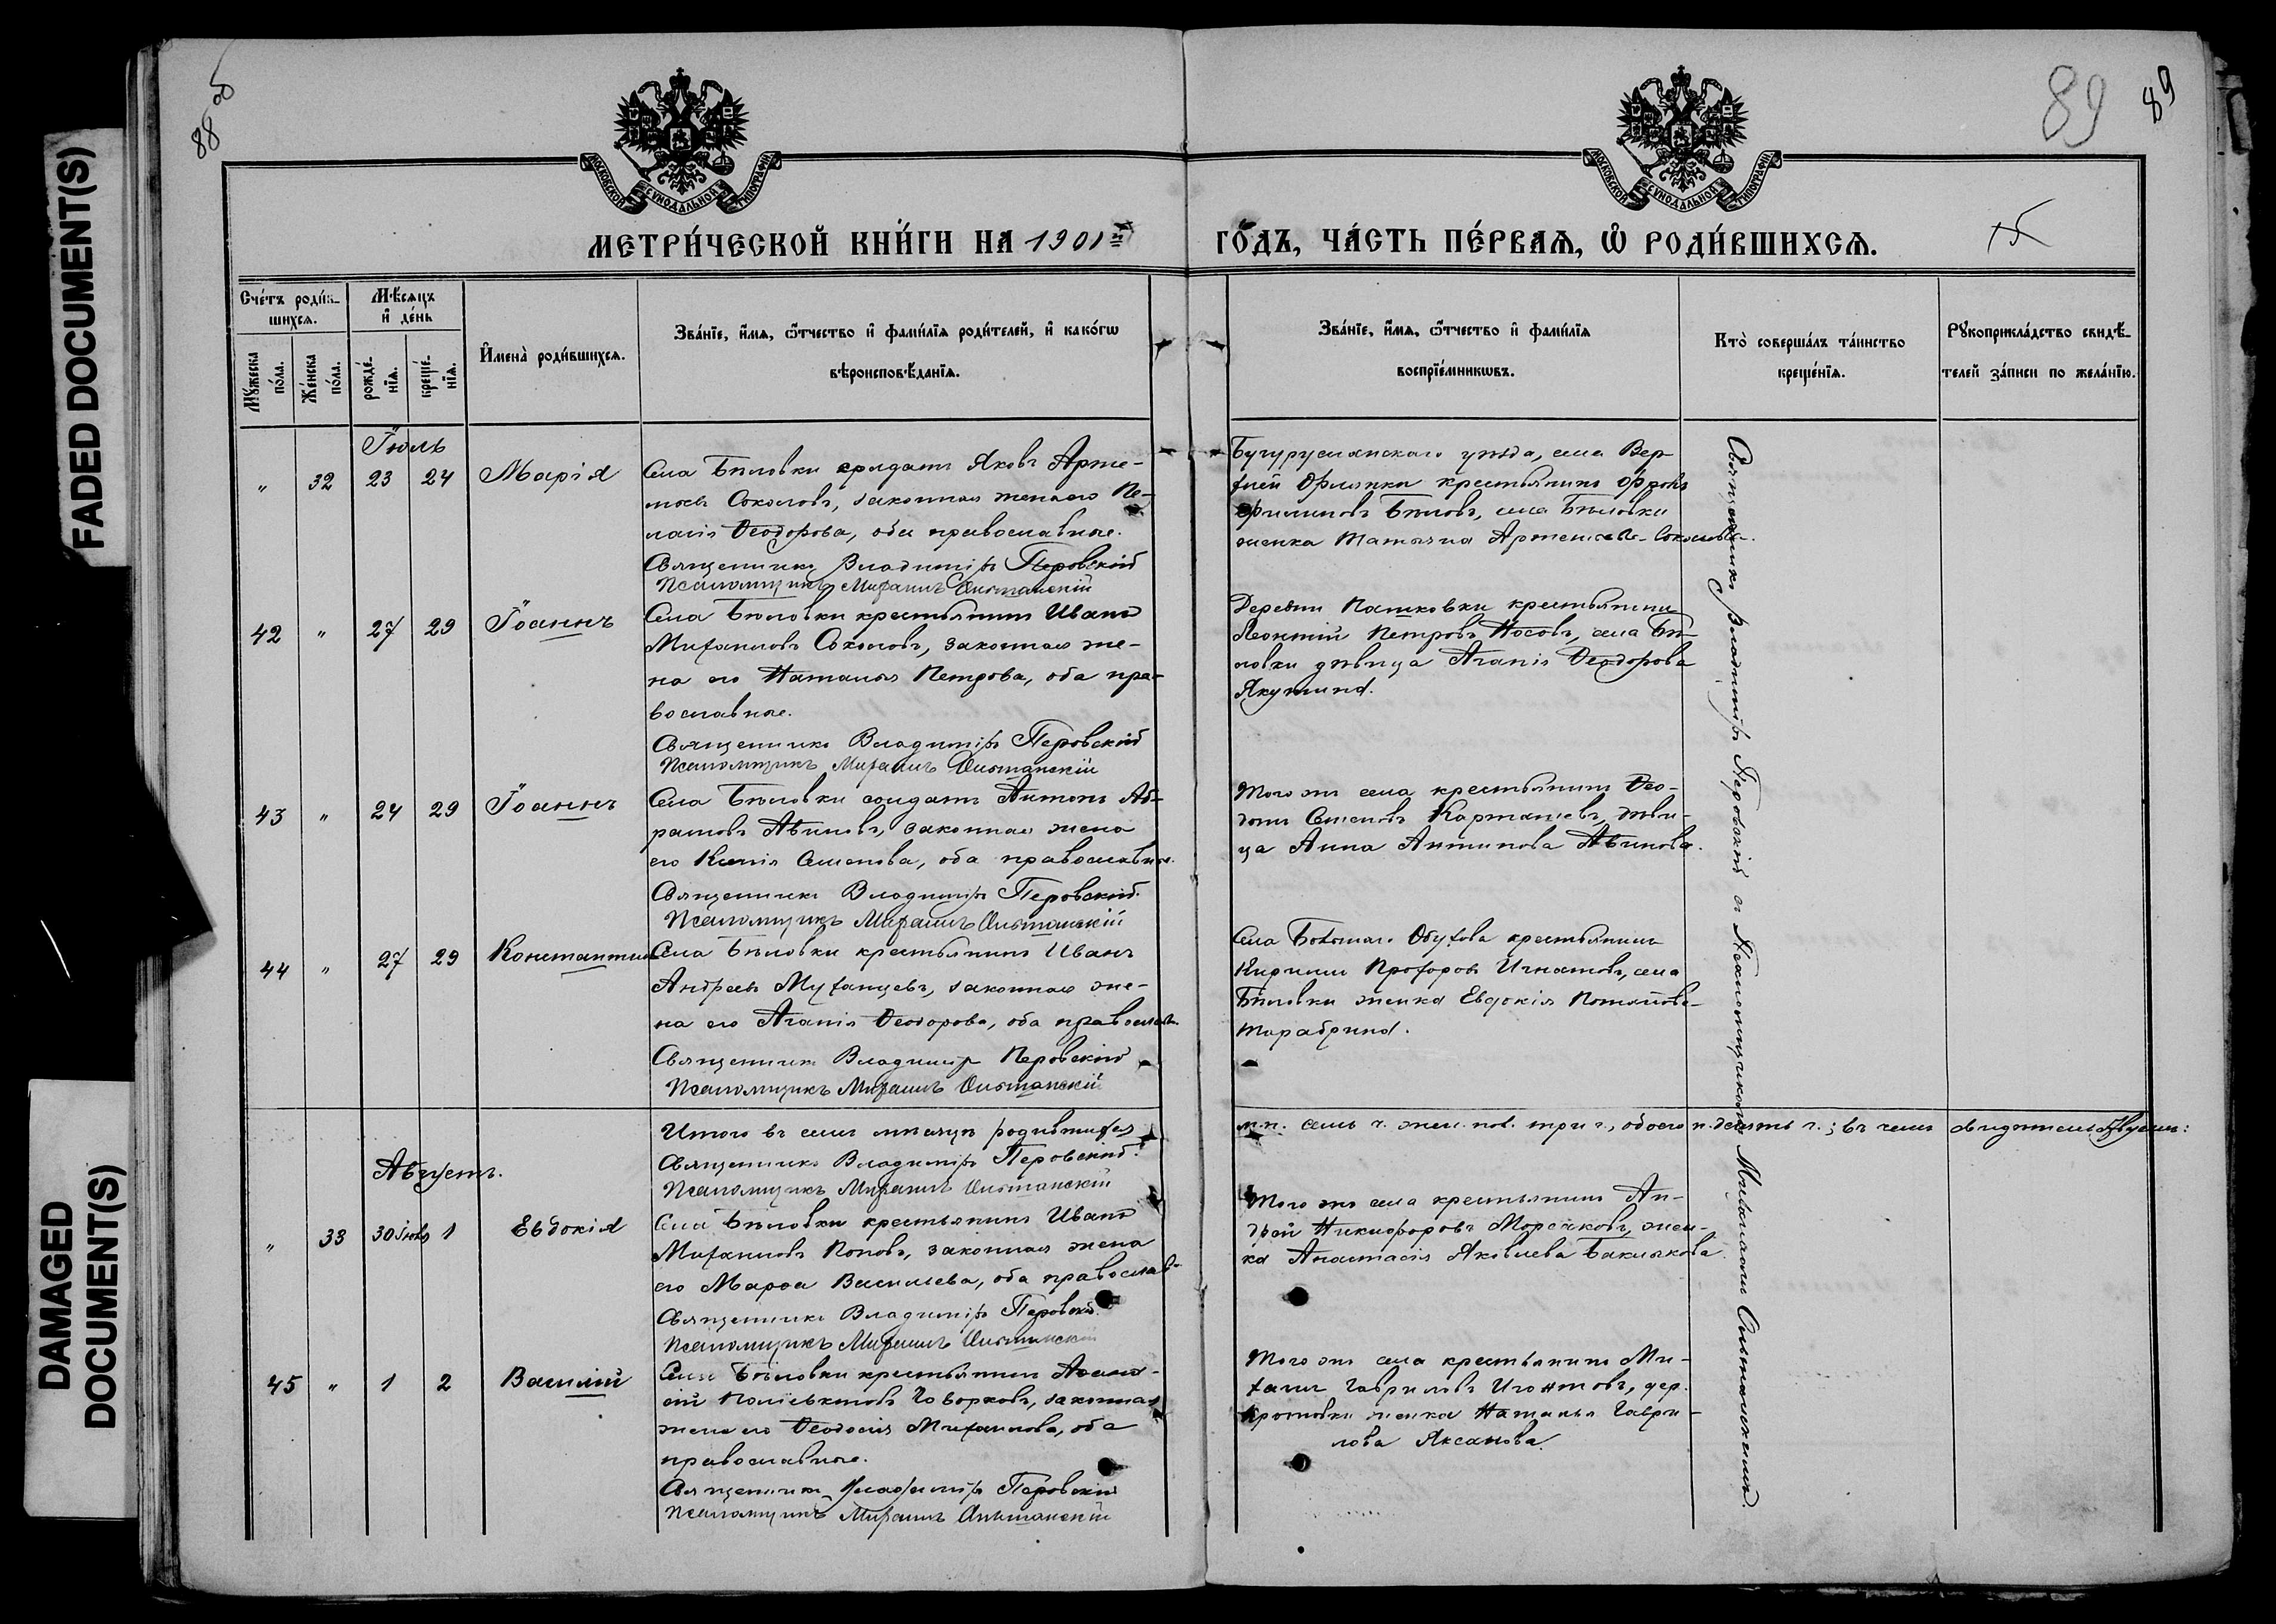 FADED DOCUMENT(S)
DAMAGED DOCUMENT(S)
88 об
89
89
15
МОСКОВСКОЙ СѴНОДАЛЬНОЙ ТИПОГРАФІИ
МОСКОВСКОЙ СѴНОДАЛЬНОЙ ТИПОГРАФІИ
МЕТРИ́ЧЕСКОЙ КНИ́ГИ НА 1901й
ГО́ДЪ, ЧА́СТЬ ПЕ́РВАѦ, Ѽ РОДИ́ВШИХСѦ.
Сче́тъ роди́в-
шихсѧ.
Мꙋжеска по́ла.
Же́нска по́ла.
Мѣ́сѧцъ
и҆ де́нь
рожде́-
нїѧ.
креще́-
нїѧ.
И҆мена̀ роди́вшихсѧ.
Зва́нїе, и҆́мѧ, ѻ҆́тчество и҆ фами́лїѧ роди́телей, и҆ како́гѡ
вѣроисповѣ́данїѧ.
Зва́нїе, и҆́мѧ, ѻ҆́тчество и҆ фами́лїѧ
воспрїе́мникѡвъ.
Кто̀ соверша́лъ та́инство
креще́нїѧ.
Рꙋкоприкла́дство свидѣ́-
телей за́писи по жела́нїю.
Іюль
" 32 23 24 Марія
Села Бѣловки солдатъ Яковъ Арте-
мовъ Соколовъ, законная жена его Пе-
лагія Ѳеодорова, оба православные.
Священникъ Владиміръ Перовскій
Псаломщикъ Михаилъ
Бугурусланскаго уѣзда, села Вер-
хней Орлянки крестьянинъ
Филиповъ Бѣловъ, села Бѣловки
женка Татьяна Артемова Соколова.
42 " 27 29 Іоаннъ
Села Бѣловки крестьянинъ Иванъ
Михаиловъ Соколовъ, законная же-
на его Наталья Петрова, оба пра-
вославные.
Священникъ Владиміръ Перовскій
Псаломщикъ Михаилъ
Деревни Пашковки крестьянинъ
Леонтій Петровъ Носовъ, села Бѣ-
ловки дѣвица Агапія Ѳеодорова
Якушина.
43 " 24 29 Іоаннъ
Села Бѣловки солдатъ Антонъ Аб-
рамовъ Авиновъ, законная жена
его Ксенія Семенова, оба православные.
Священникъ Владиміръ Перовскій
Псаломщикъ Михаилъ
Того же села крестьянинъ Ѳео-
Семеновъ Карташевъ, дѣви-
ца Анна Антипова Авинова.
44 " 27 29 Константинъ
Села Бѣловки крестьянинъ Иванъ
Андреевъ Муханцевъ, законная же-
на его Агапія Ѳеодорова, оба православ.
Священникъ Владиміръ Перовскій
Псаломщикъ Михаилъ
Села Обухова крестьянинъ
Кириллъ Прохоровъ Игнатовъ, села
Бѣловки женка Евдокія Потапова
Тарабрина.
Итого въ семъ мѣсяцѣ родившихся
м.п. семь ч. жен. пол. три ч., обоего п. десять ч.; въ чемъ свидѣтельствуемъ:
Священникъ Владиміръ Перовскій
Псаломщикъ Михаилъ
Августъ.
" 33 30 Іюля 1 Евдокія
Села Бѣловки крестьянинъ Иванъ
Михаиловъ Поповъ, законная жена
его Марѳа Васильева, оба православ.
Священникъ Владиміръ Перовскій
Псаломщикъ Михаилъ
Того же села крестьянинъ Ан-
дрей Никифоровъ Морсаковъ, жен-
ка Анастасія Яковлева Баклакова
45 " 1 2 Василій
Села Бѣловки крестьянинъ Аѳана-
сій Поліевктовъ Говорковъ, законная
жена его Ѳеодосія Михаилова, оба
православные.
Священникъ Владиміръ Перовскій
Псаломщикъ Михаилъ
Того же села крестьянинъ Ми-
хаилъ Гавриловъ дер.
женка Наталья Гаври-
лова Аксанова.
Священникъ Владиміръ Перовскій съ Псаломщикомъ Михаиломъ